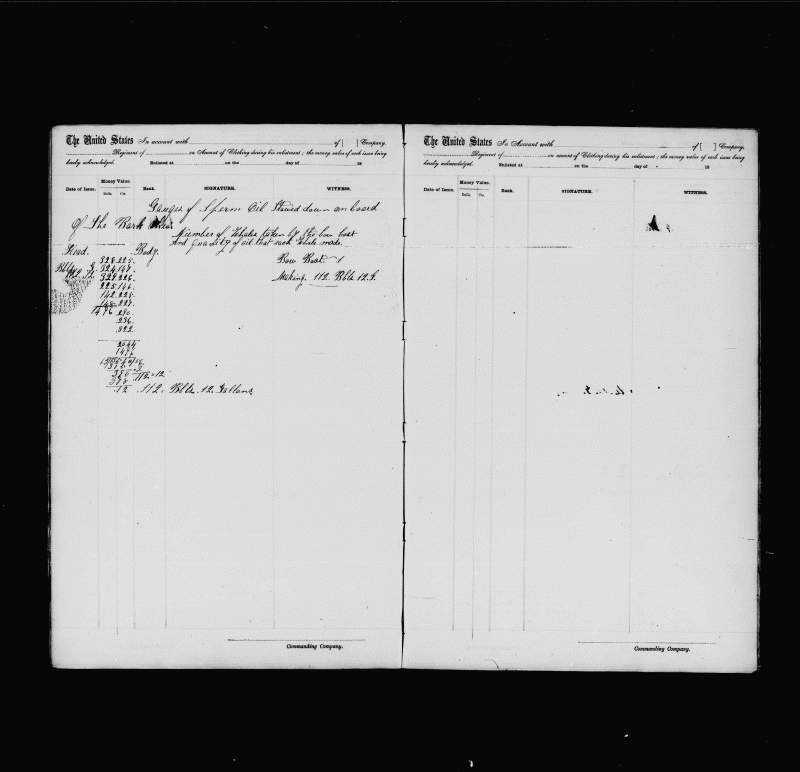 The United States In account with of [ ] Company.
Regiment of on Account of Clothing during his enlistment; the money value of each issue being
hereby acknowledged. Enlisted at on the day of 18
Date of Issue. Money Value. Rank. SIGNATURE. WITNESS.
Dolls. Cts.
Ganges of Sperm Oil Stowed down on board
Of the Bark
Number of Whales taken by the bow boat
And Quantity of oil that each Whale made.
Head. Body.
Bow Boat. 1
Making. 112. Bbls 12. G.
328 225.
324 147.
327 226.
225 146.
142 228.
148 227.
1496 290.
236.
322.
2044
1496
350 112 12
378
.12 .112. Bbls. 12. Gallons
Commanding Company.
The United States In Account with of [ ] Company.
Regiment of on account of Clothing during his enlistment; the money value of each issue being
hereby acknowledged. Enlisted at on the day of 18
Date of Issue. Money Value. Rank. SIGNATURE. WITNESS.
Dolls. Cts.
Commanding Company.